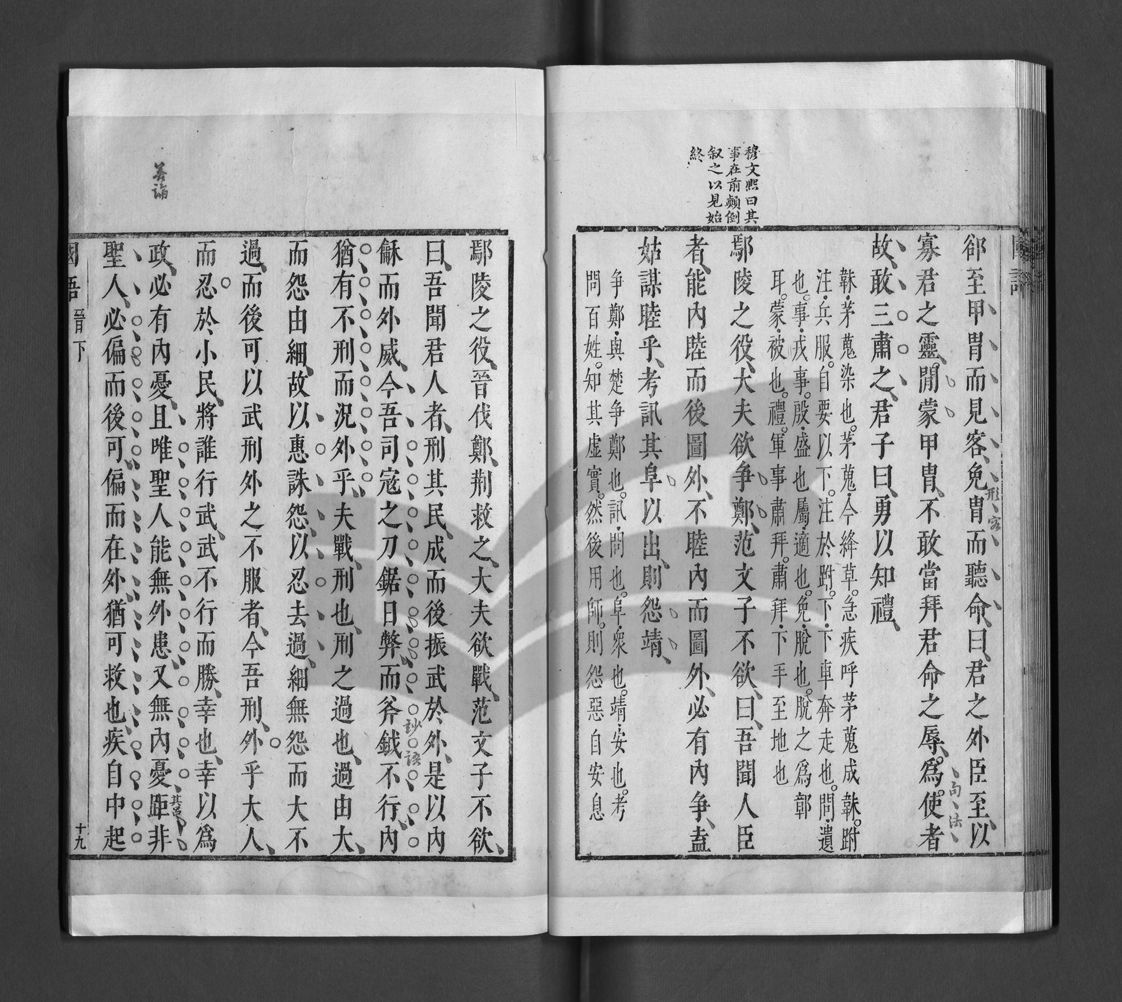 穆文熙曰其
事在前顛倒
叙之以見始
終
郤至甲冑而見客免冑而聽命曰君之外臣至以
寡君之靈閒蒙甲冑不敢當拜君命之辱爲使者
故敢三肅之君子曰勇以知禮
韎茅蒐染也茅蒐今絳草急疾呼茅蒐成韎跗
注兵服自要以下注於跗下下車奔走也問遺
也事戎事殷盛也屬適也免脫也脫之爲郭
耳蒙被也禮軍事肅拜肅拜下手至地也
鄢陵之役大夫欲爭鄭范文子不欲曰吾聞人臣
者能內睦而後圖外不睦內而圖外必有內爭盍
姑謀睦乎考訊其阜以出則怨靖
爭鄭與楚爭鄭也訊問也阜衆也靖安也考
問百姓知其虛實然後用師則怨惡自安息
鄢陵之役晉伐鄭荆救之大夫欲戰范文子不欲
曰吾聞君人者刑其民成而後振武於外是以內
龢而外威今吾司寇之刀鋸日弊而斧鉞不行內
猶有不刑而況外乎夫戰刑也刑之過也過由大
而怨由細故以惠誅怨以忍去過細無怨而大不
過而後可以武刑外之不服者今吾刑外乎大人
而忍於小民將誰行武武不行而勝幸也幸以爲
政必有內憂且唯聖人能無外患又無內憂距非
聖人必偏而後可偏而在外猶可救也疾自中起
國語 晉下
十九
妙語
句法